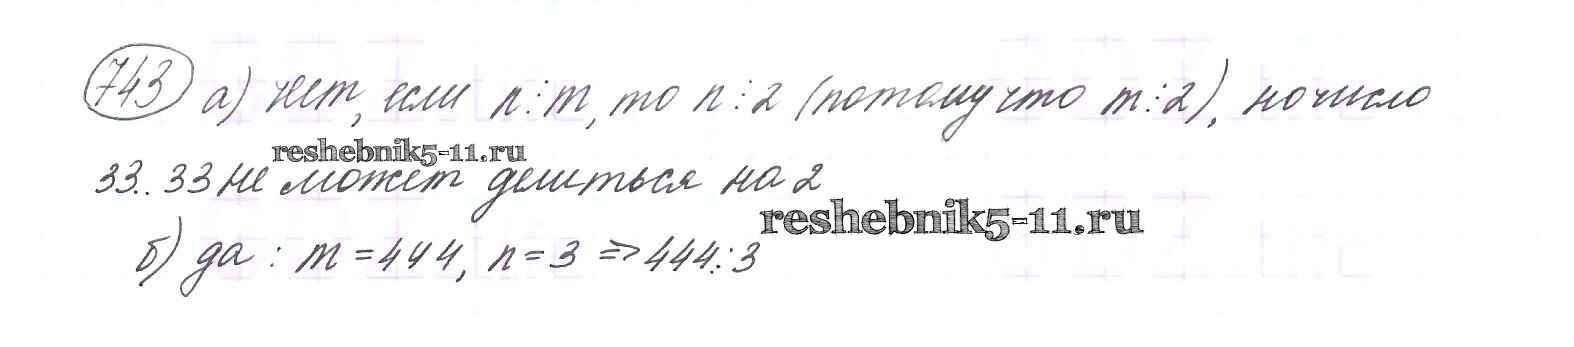 743 а) нет, если n⋮m, то n⋮2 (потому что m⋮2), но число
reshebnik5-11.ru
33..33 не может делиться на 2
reshebnik5-11.ru
б) да : m = 444, n = 3 => 444⋮3